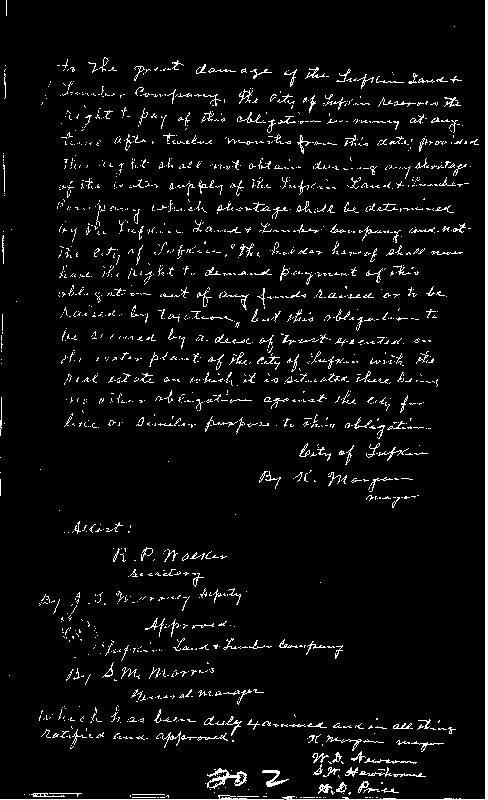 to the great damage of the Lufkin Land &
Lumber Company, The City of Lufkin reserves the
right to pay of this obligation in money at any
time after twelve months from this date; provided
this right shall not obtain during any shortage
of the water supply of the Lufkin Land & Lumber
Company which shortage shall be determined
by the Lufkin Land & Lumber Company and not
the City of Lufkin, "The holder hereof shall never
have the right to demand payment of this
obligation out of any funds raised or to be
raised by taxation, but this obligation to
be secured by a deed of trust executed on
the water plant of the City of Lufkin with the
real estate on which it is situated there being
no other obligation against the city for
like or similar purpose to this obligation
City of Lufkin
By K. Morgan
mayor
Attest:
R. P. Walker
Secretary
By J. T. Deputy
Approved.
Lufkin Land & Lumber Company
By S. M. Morris
General Manager
Which has been duly examined and in all thing
ratified and approved!
K. Morgan mayor
W. D. Newsom
S. W. Hawthorne
W. D. Price
202